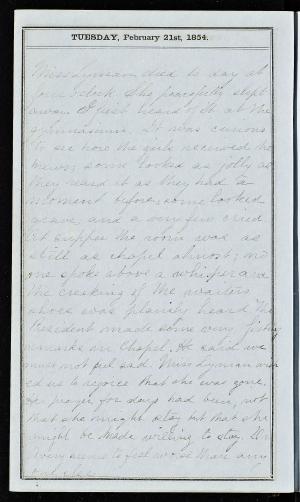 TUESDAY, February 21st, 1854.
Miss Lyman died to day at
four o'clock. She peacefully slept
away. I first heard of it at the
gymnasium. It was curious
to see how the girls received the
news; some looked as jolly as
they heard it as they had a
moment before, some looked
grave, and a very few cried
At supper the room was as
still as chapel almost; no
one spoke above a whisper and
the creaking of the waiters
shoes was plainly heard. The
President made some very
remarks in Chapel. He said we
must not feel sad. Miss Lyman
ed us to rejoice that she was gone.
prayer for days had been, not
that she might stay but that she
might be made willing to stay.
Avery seems to feel worse than any